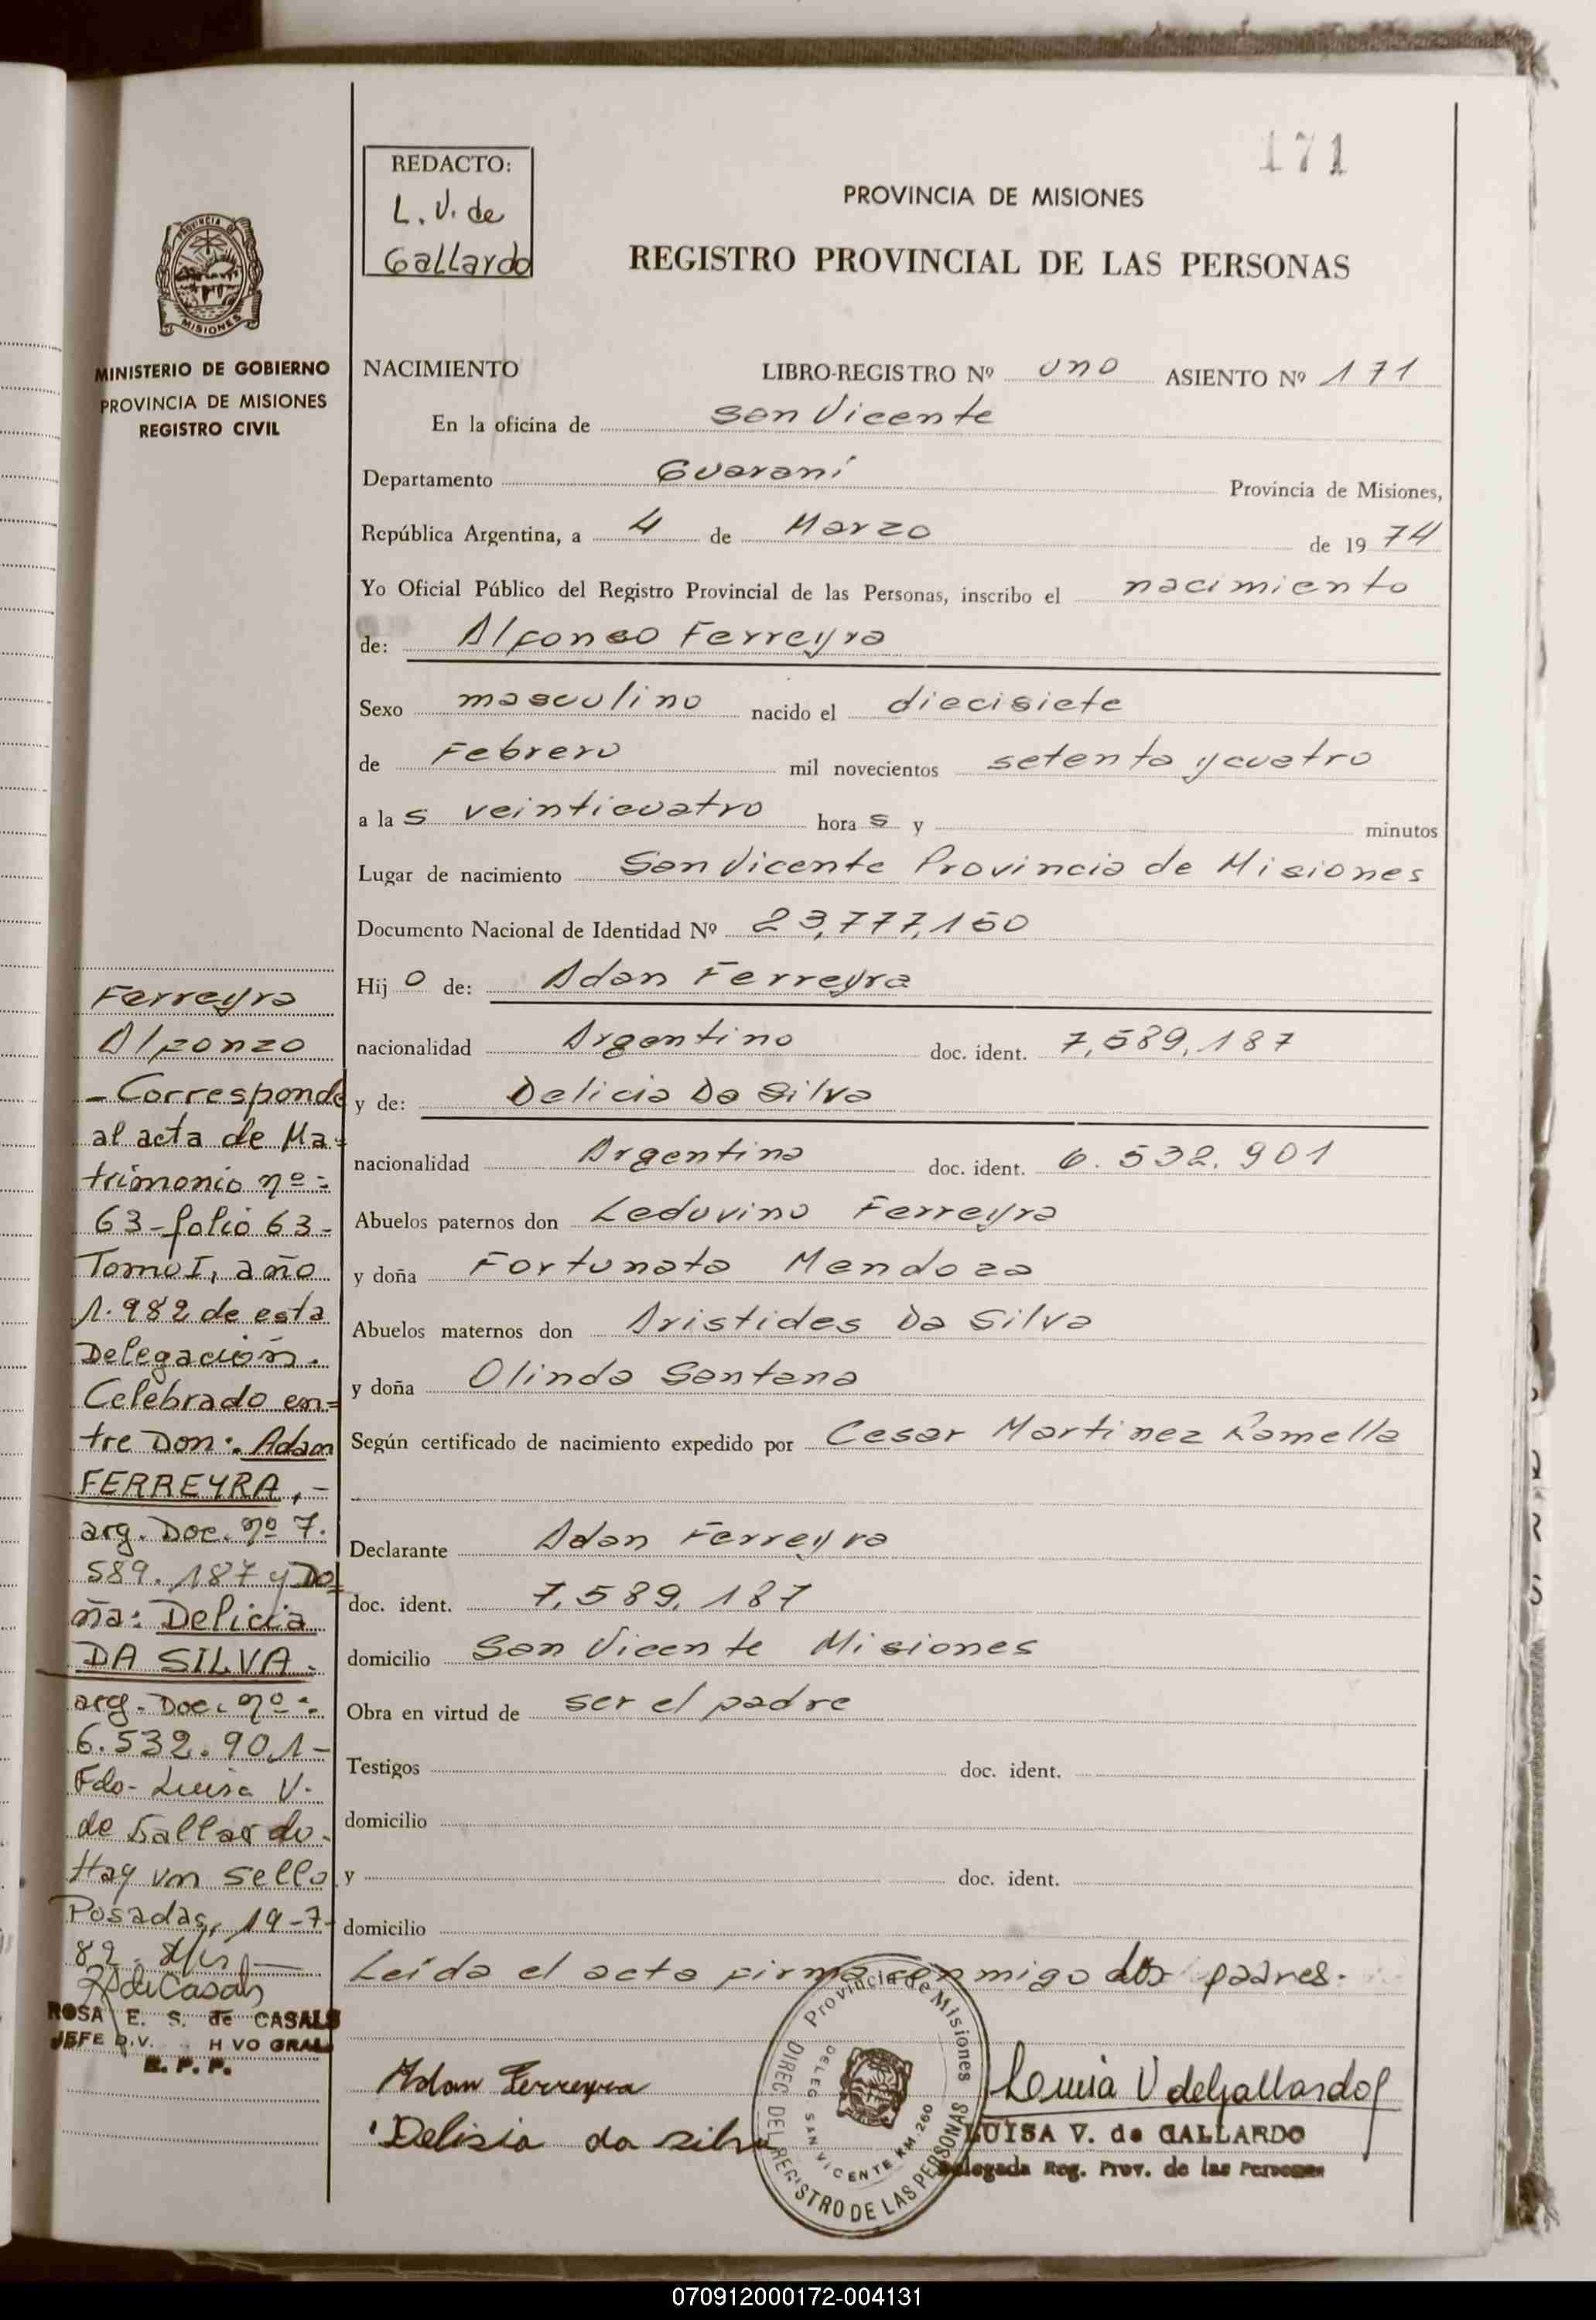 171
REDACTO:
L. V. de
Gallardo
PROVINCIA DE MISIONES
REGISTRO PROVINCIAL DE LAS PERSONAS
PROVINCIA DE
MISIONES
MINISTERIO DE GOBIERNO
PROVINCIA DE MISIONES
REGISTRO CIVIL
NACIMIENTO LIBRO-REGISTRO Nº uno ASIENTO Nº 171
En la oficina de San Vicente
Departamento Guaraní Provincia de Misiones,
República Argentina, a 4 de Marzo de 19 74
Yo Oficial Público del Registro Provincial de las Personas, inscribo el nacimiento
de: Alfonso Ferreyra
Sexo masculino nacido el diecisiete
de Febrero mil novecientos setenta y cuatro
a la s veinticuatro hora s y minutos
Lugar de nacimiento San Vicente Provincia de Misiones
Documento Nacional de Identidad Nº 23,777,150
Hij o de: Adan Ferreyra
nacionalidad Argentino doc. ident. 7,589,187
y de: Delicia Da Silva
nacionalidad Argentina doc. ident. 6.532.901
Abuelos paternos don Leduvino Ferreyra
y doña Fortunata Mendoza
Abuelos maternos don Aristides Da Silva
y doña Olinda Santana
Según certificado de nacimiento expedido por Cesar Martinez Ramella
Declarante Adan Ferreyra
doc. ident. 7,589,187
domicilio San Vicente Misiones
Obra en virtud de ser el padre
Testigos doc. ident.
domicilio
y doc. ident.
domicilio
Leída el acta firma conmigo los padres.
Adan Ferreyra
Delisia da silva
Provincia de Misiones
DIREC. DEL REGISTRO DE LAS PERSONAS
DELEG. SAN VICENTE KM. 260
Louisa V de Gallardo
LUISA V. de GALLARDO
Delegada Reg. Prov. de las Personas
Ferreyra
Alfonzo
- Corresponde
al acta de Ma-
trimonio nº-
63-folio 63-
Tomo I, año
1.982 de esta
Delegación.
Celebrado en=
tre Don: Adam
FERREYRA,-
arg. Doc. nº 7.
589.187 y Do=
ña: Delicia
DA SILVA.
arg. Doc. nº-
6.532.901-
Fdo- Luisa V.
de Gallardo.
Hay un sello
Posadas, 19-7-
82. Mis-
R S de Casals
ROSA E. S. de CASALS
JEFE DIV. H VO GRAL
R. P. P.
070912000172-004131